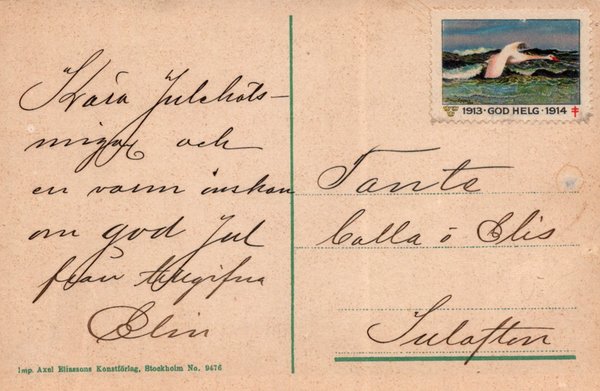 Kära Julehots-
migar och
en varm önskan
om god Jul
från tillgifna
Elin
Imp. Axel Eliassons Konstförlag, Stockholm No. 9476
1913 · GOD HELG · 1914
Tante
Calla o Elis
Julafton